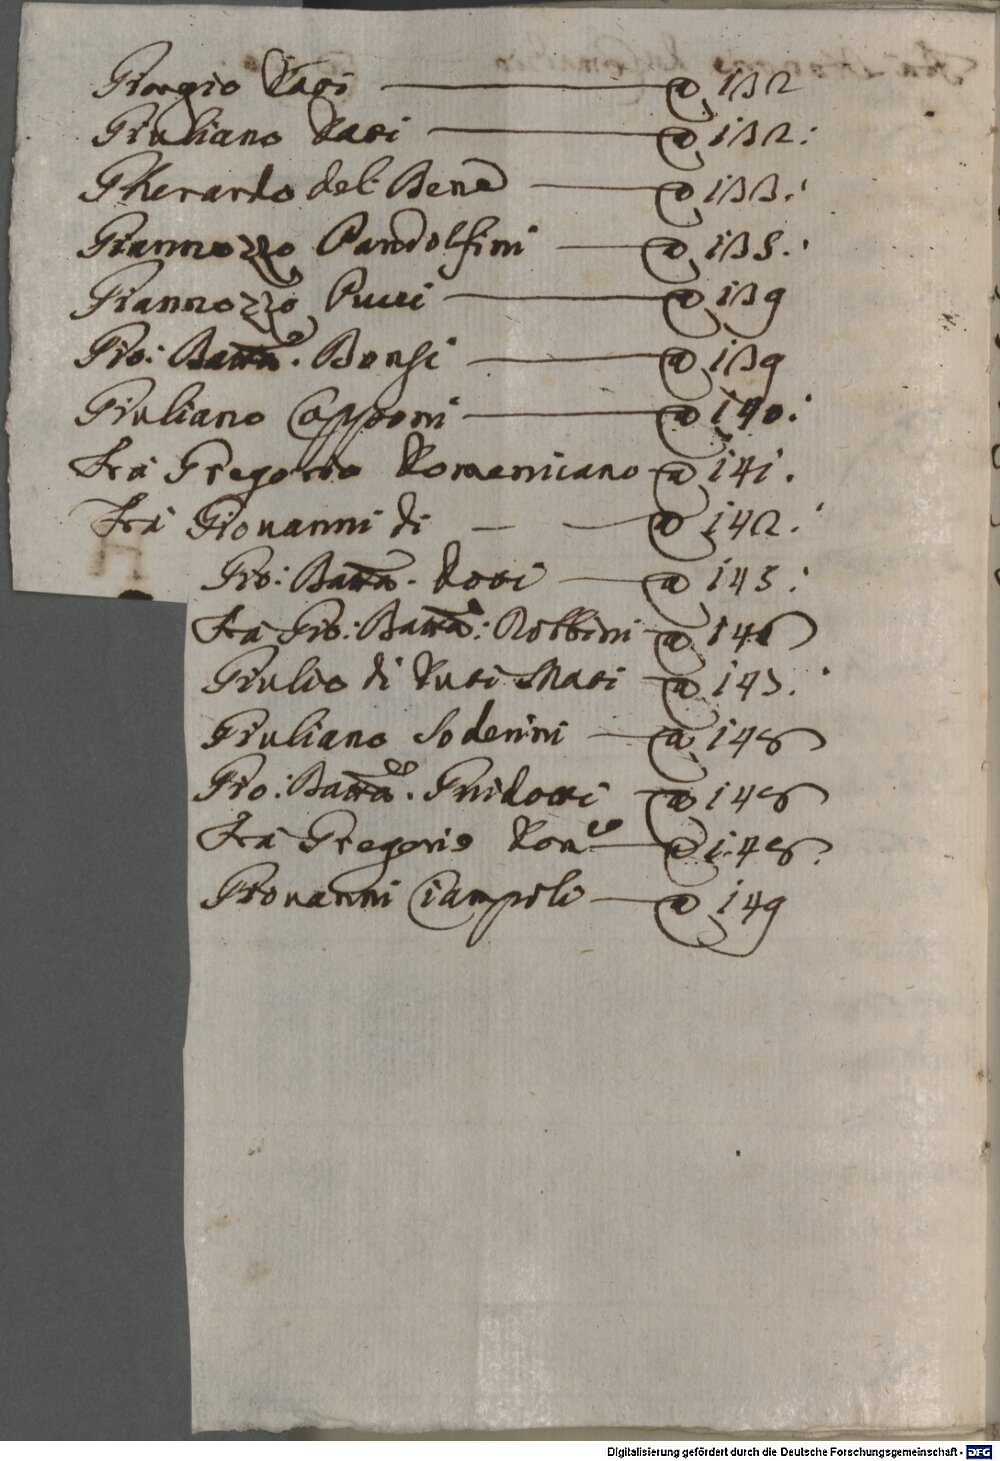 Giorgio Vasi — a 132
Giuliano Vasi — a 132:
Gherardo del Bene — a 133.
Giannozzo Pandolfini — a 135.
Giannozzo Pucci — a 139
Gio: Batta. Bonsi — a 139
Giuliano Capponi — a 140.
Fra Gregorio Romanicano a 141.
Fra Giovanni di — — a 142.
Gio: Batta. — a 143:
Fra Gio: Batta: Robbini a 146
Giulio di Masi a 145.
Giuliano Soderini — a 148
Gio: Batta. Guidotti a 148
Fra Gregorio Rom.co — a 148.
Giovanni Ciampoli — a 149
Digitalisierung gefördert durch die Deutsche Forschungsgemeinschaft - DFG